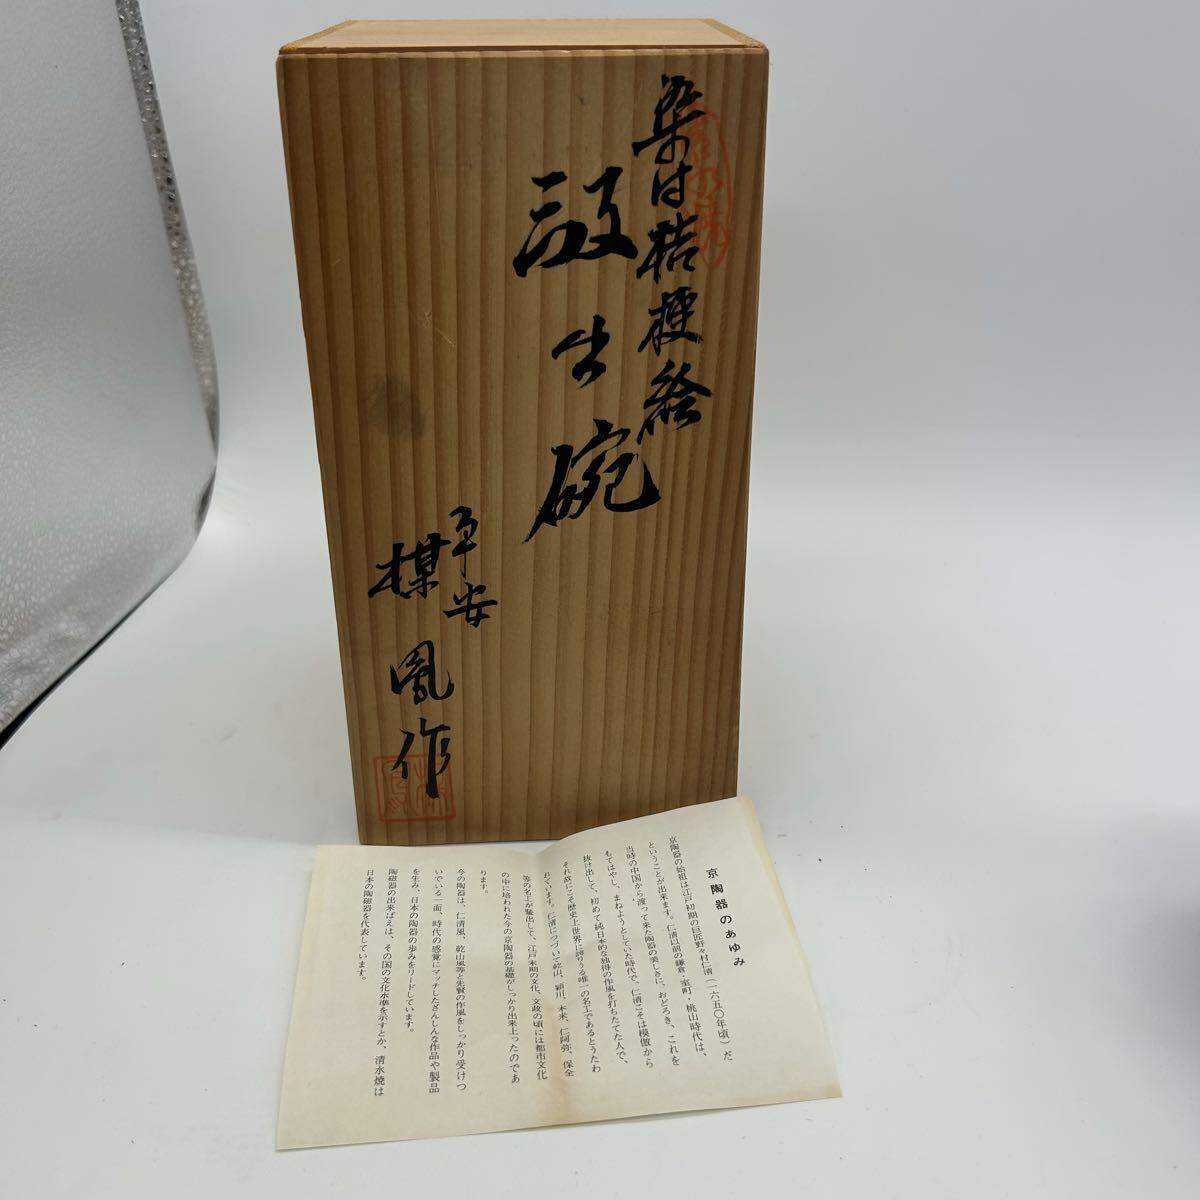 染付桔梗絵
汲出碗
平安
楳凰作
清水焼
京陶器のあゆみ
京陶器の始祖は江戸初期の巨匠野々村仁清(一六五〇年頃)だ
ということが出来ます。仁清以前の鎌倉・室町・桃山時代は、
当時の中国から渡って来た陶器の美しさに、おどろき、これを
もてはやし、まねようとしていた時代で、仁清こそは模倣から
抜け出して、初めて純日本的な独得の作風を打ちたてた人で、
それ故にこそ歴史上世界に誇りうる唯一の名工であるとうたわ
れています。仁清につづいて乾山、穎川、木米、仁阿弥、保全
等の名工が輩出して、江戸末期の文化、文政の頃には都市文化
の中に培われた今の京陶器の基礎がしっかり出来上ったのであ
ります。
今の陶器は、仁清風、乾山風等と先賢の作風をしっかり受けつ
いでいる一面、時代の感覚にマッチしたざんしんな作品や製品
を生み、日本の陶器の歩みをリードしています。
陶磁器の出来ばえは、その国の文化水準を示すとか、清水焼は
日本の陶磁器を代表しています。